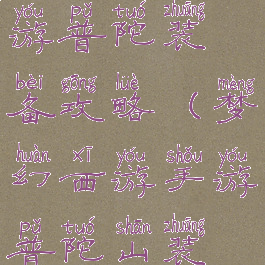 yóu pǔ tuó zhuāng
游普陀装
bèi gōng lüè mèng
备攻略（梦
huàn xī yóu shǒu yóu
幻西游手游
pǔ tuó shān zhuāng
普陀山装